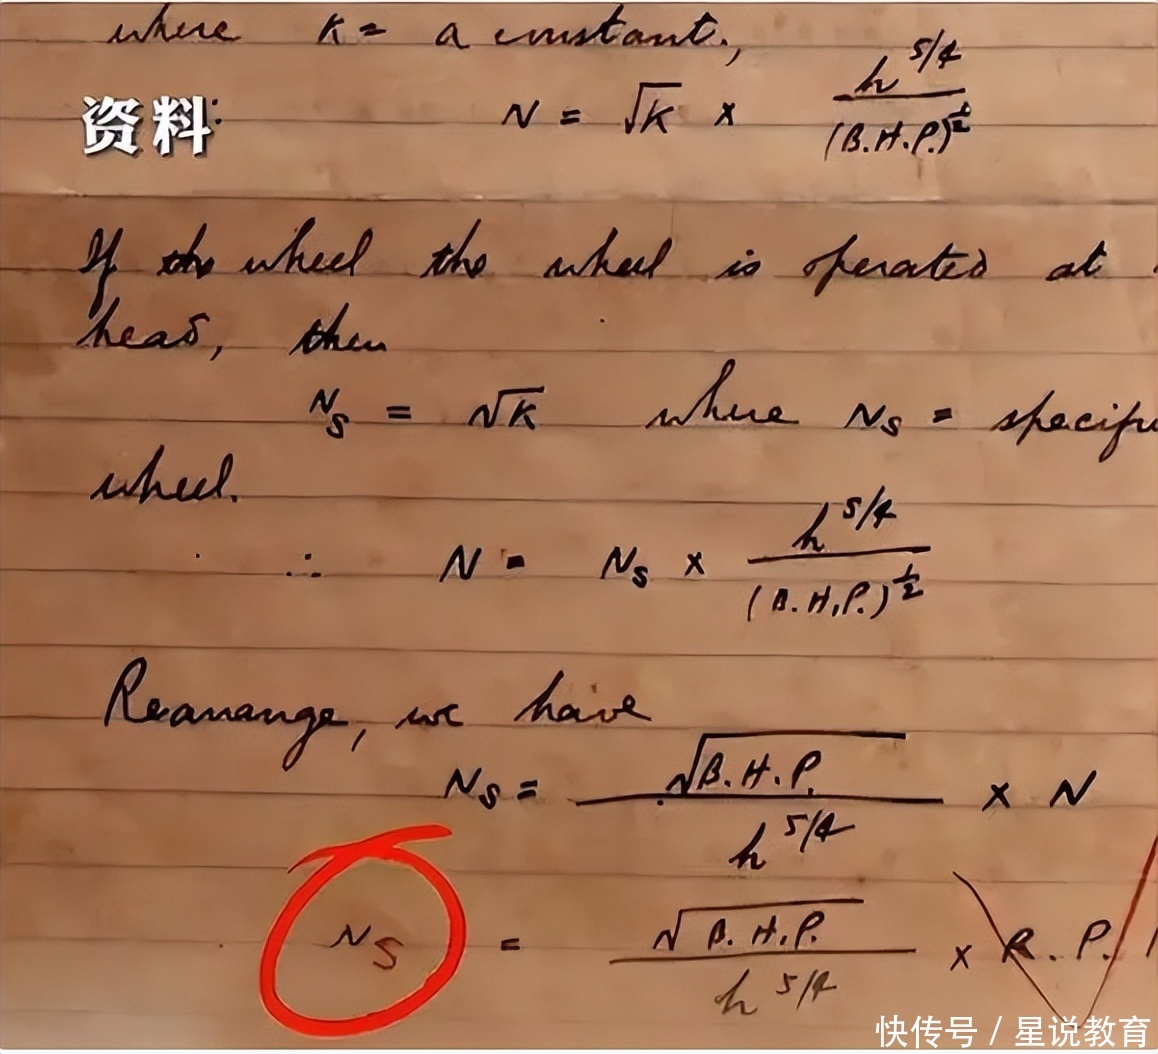 where K = a constant.,
N = √K × h^5/4 / (B.H.P.)^1/2
资料:
If the wheel the wheel is operated at
head, then
Ns = √K where Ns = specific
wheel.
∴ N = Ns × h^5/4 / (B.H.P.)^1/2
Rearrange, we have
Ns = √B.H.P. / h^5/4 × N
Ns = √B.H.P. / h^5/4 × R.P.
快传号 / 星说教育